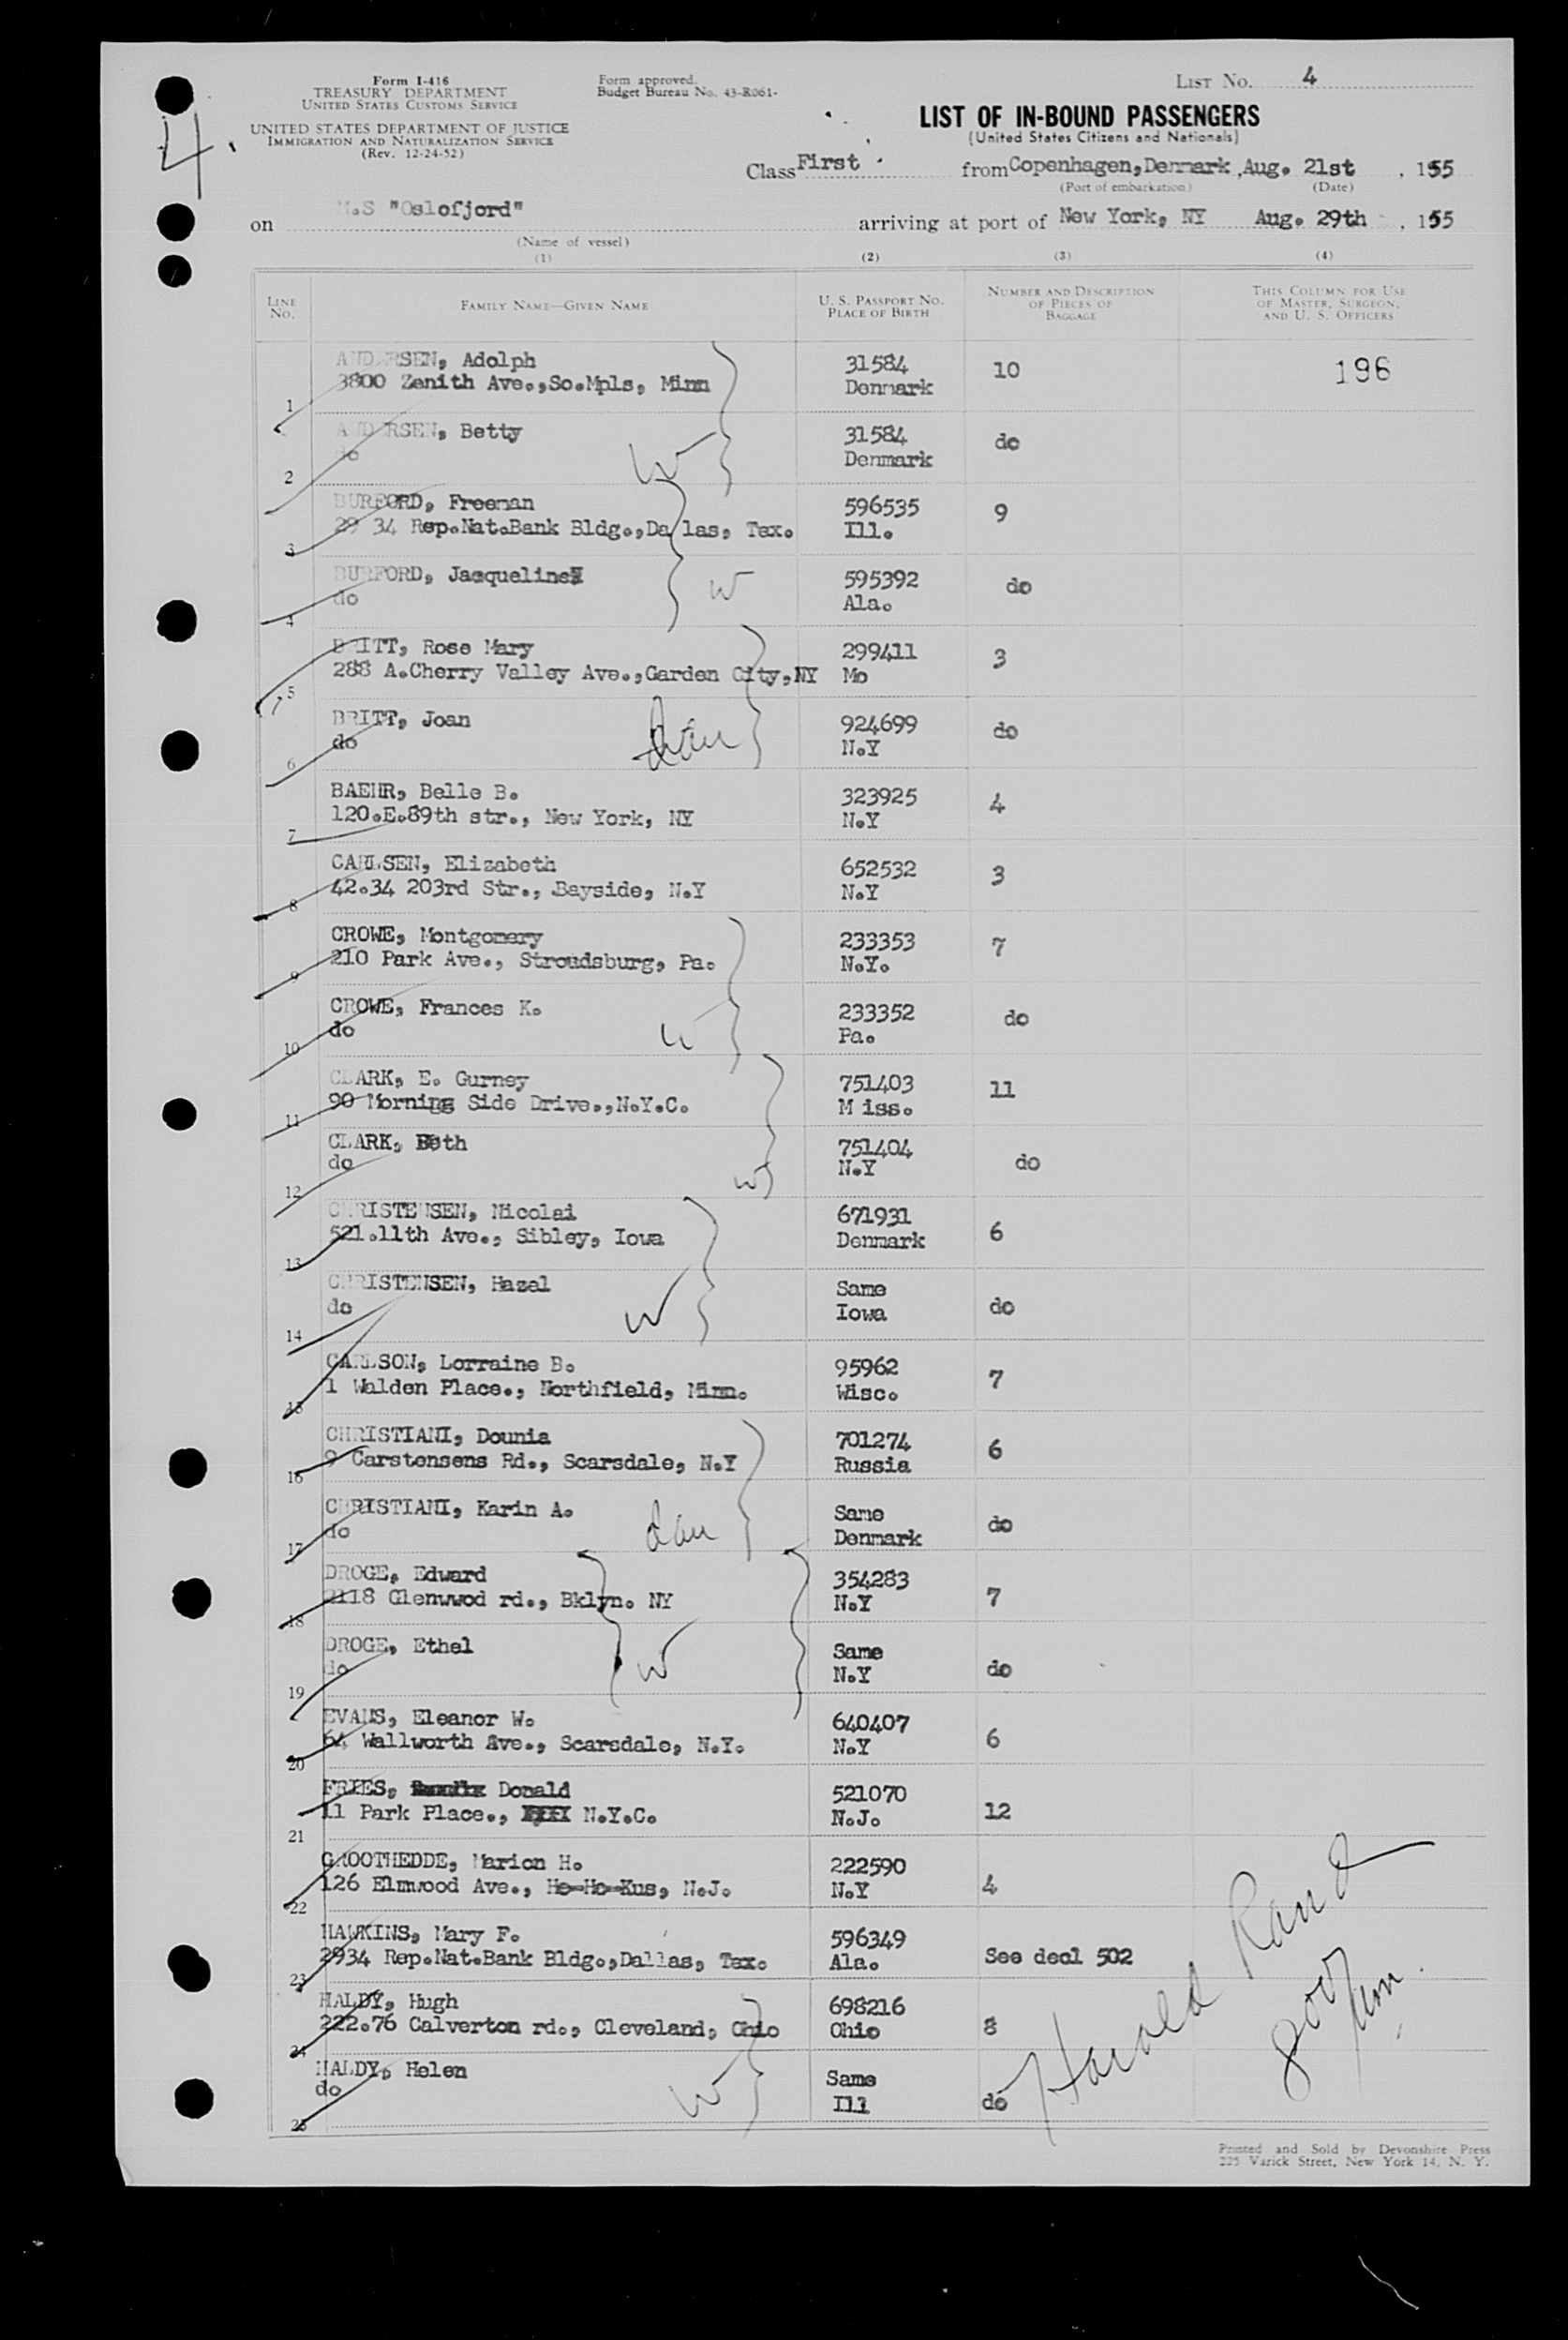 Form I-416
TREASURY DEPARTMENT
UNITED STATES CUSTOMS SERVICE
UNITED STATES DEPARTMENT OF JUSTICE
IMMIGRATION AND NATURALIZATION SERVICE
(Rev. 12-24-52)
Form approved.
Budget Bureau No. 43-R061-
LIST No. 4
4.
LIST OF IN-BOUND PASSENGERS
(United States Citizens and Nationals)
Class First from Copenhagen, Denmark, Aug. 21st, 155
(Port of embarkation) (Date)
on M.S "Oslofjord" arriving at port of New York, NY Aug. 29th, 155
(Name of vessel)
(1) (2) (3) (4)
LINE No. FAMILY NAME—GIVEN NAME U. S. PASSPORT No. PLACE OF BIRTH NUMBER AND DESCRIPTION OF PIECES OF BAGGAGE THIS COLUMN FOR USE OF MASTER, SURGEON, AND U. S. OFFICERS
ANDERSEN, Adolph 31584 10 196
1 3800 Zenith Ave.,So.Mpls, Minn Denmark
ANDERSEN, Betty 31584 do
2 do W Denmark
BURFORD, Freeman 596535 9
3 29 34 Rep.Nat.Bank Bldg.,Dallas, Tex. Ill.
BURFORD, Jacqueline 595392 do
4 do W Ala.
BRITT, Rose Mary 299411 3
5 288 A.Cherry Valley Ave.,Garden City,NY Mo
BRITT, Joan 924699 do
6 do dau N.Y
BAEHR, Belle B. 323925 4
7 120.E.89th str., New York, NY N.Y
CARLSEN, Elizabeth 652532 3
8 42.34 203rd Str., Bayside, N.Y N.Y
CROWE, Montgomery 233353 7
9 210 Park Ave., Stroudsburg, Pa. N.Y.
CROWE, Frances K. 233352 do
10 do W Pa.
CLARK, E. Gurney 751403 11
11 90 Morning Side Drive.,N.Y.C. M iss.
CLARK, Beth 751404 do
12 do W N.Y
CHRISTENSEN, Nicolai 671931 6
13 521.11th Ave., Sibley, Iowa Denmark
CHRISTENSEN, Hazel Same do
14 do W Iowa
CARLSON, Lorraine B. 95962 7
15 1 Walden Place., Northfield, Minn. Wisc.
CHRISTIANI, Dounia 701274 6
16 9 Carstensens Rd., Scarsdale, N.Y Russia
CHRISTIANI, Karin A. Same do
17 do dau Denmark
DROGE, Edward 354283 7
18 2118 Glenwwod rd., Bklyn. NY N.Y
DROGE, Ethel Same do
19 do W N.Y
EVANS, Eleanor W. 640407 6
20 64 Wallworth Ave., Scarsdale, N.Y. N.Y
FRIES, Donald 521070 12
21 11 Park Place., N.Y.C. N.J.
GROOTHEDDE, Marion H. 222590 4
22 126 Elmwood Ave., Ho-Ho-Kus, N.J. N.Y
HAWKINS, Mary F. 596349 See decl 502
23 2934 Rep.Nat.Bank Bldg.,Dallas, Tex. Ala.
HALDY, Hugh 698216 8
24 222.76 Calverton rd., Cleveland, Ohio Ohio
HALDY, Helen Same do
25 do W Ill
Harold Rand
Printed and Sold by Devonshire Press
225 Varick Street, New York 14, N. Y.